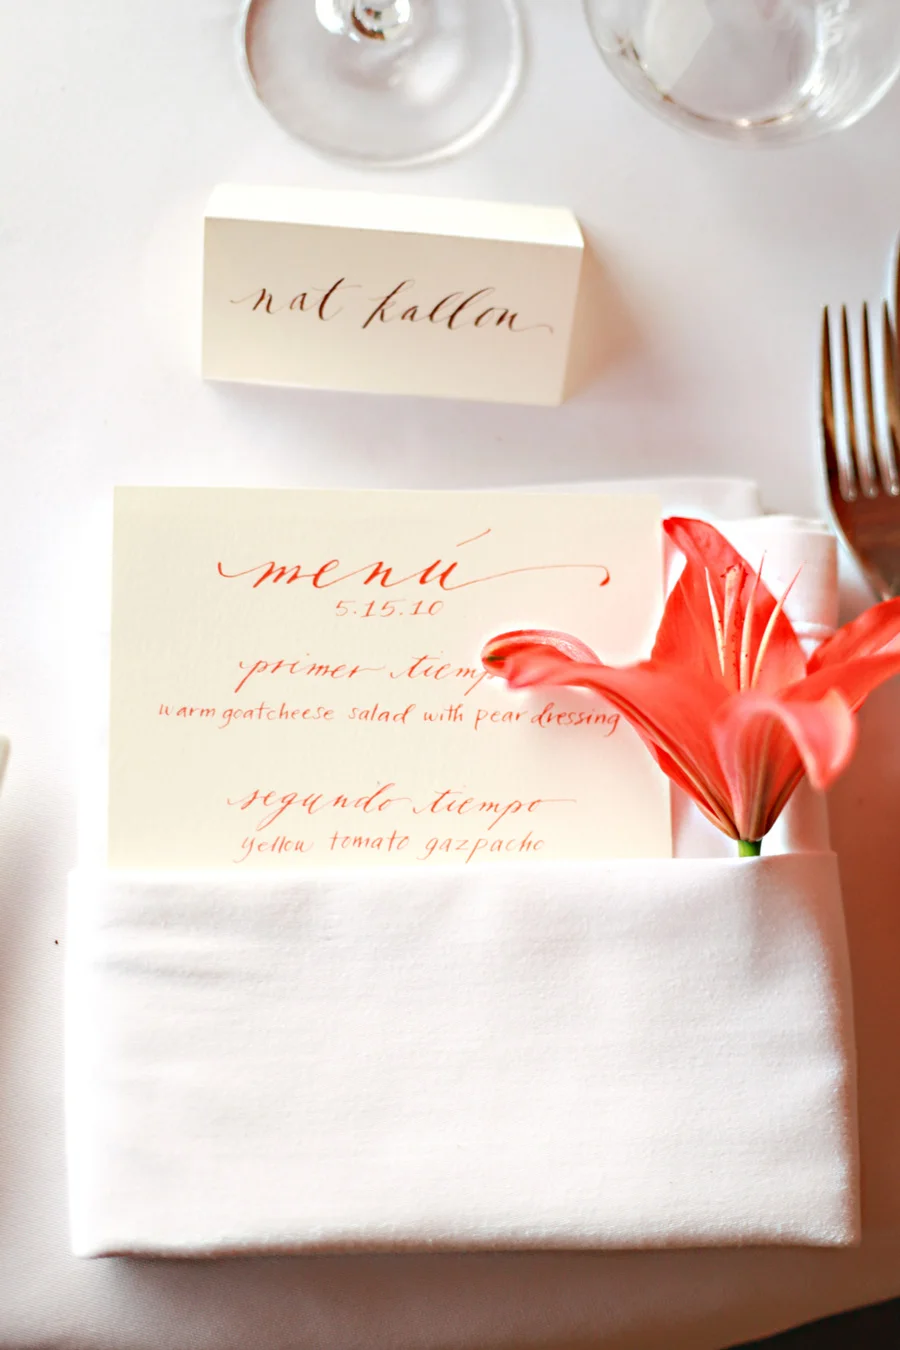 nat kallon
menú
5.15.10
primer tiemp
warm goatcheese salad with pear dressing
segundo tiempo
yellow tomato gazpacho